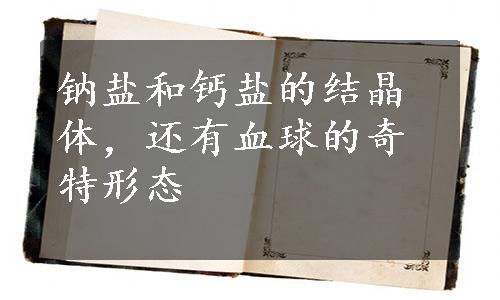 钠盐和钙盐的结晶
体，还有血球的奇
特形态